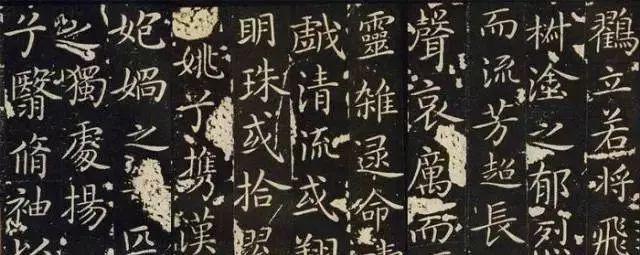 鶴立若將飛
椒塗之郁烈
而流芳超長
聲哀厲而
靈雜遝命
戲清流或翔
明珠或拾翠
姚兮攜漢
媧之匹
之獨處揚
兮翳脩袖以